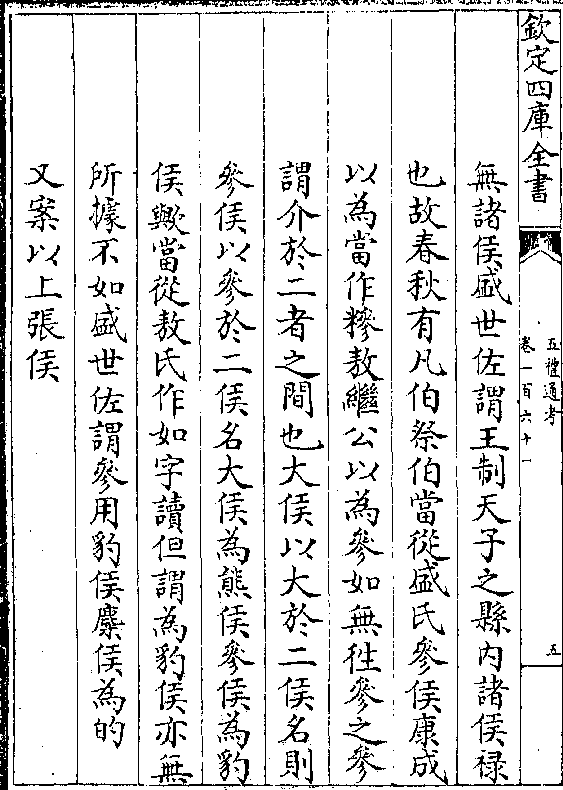 欽定四庫全書
五禮通考
卷一百六十一
五
無諸侯盛世佐謂王制天子之縣内諸侯禄
也故春秋有凡伯祭伯當從盛氏參侯康成
以為當作糝敖繼公以為參如無徃參之參
謂介於二者之間也大侯以大於二侯名則
參侯以參於二侯名大侯為熊侯參侯為豹
侯歟當從敖氏作如字讀但謂為豹侯亦無
所據不如盛世佐謂參用豹侯麋侯為的
又案以上張侯